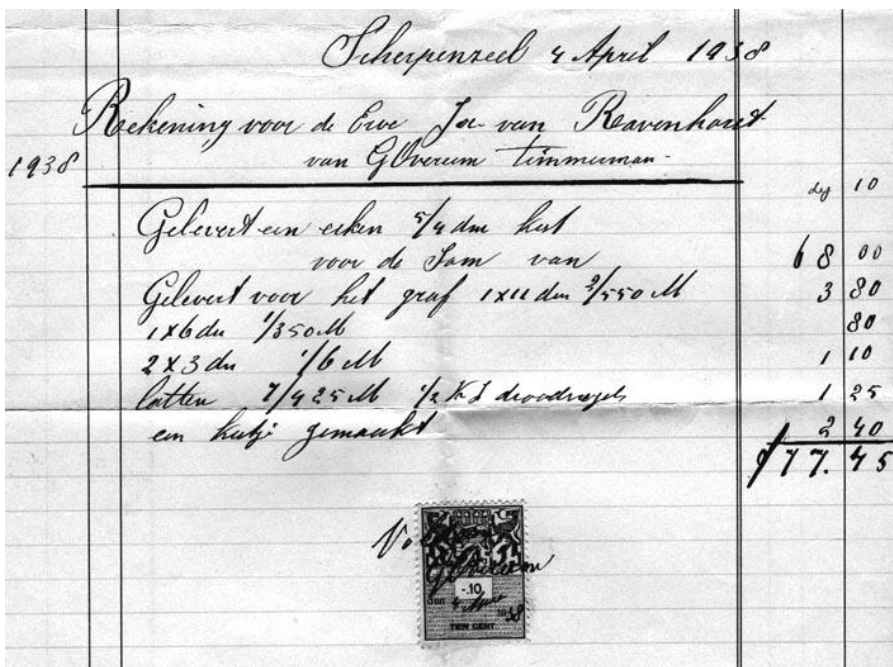 Scherpenzeel 4 April 1938
Rekening voor de Erve Jac van Ravenhorst
1938 van G Overeem timmerman
10
Gelevert een eiken 5/4 dm kist
voor de Som van 68 00
Gelevert voor het graf 1x11 dm 2/550 M 3 80
1x6 dm 1/350 M 80
2x3 dm 1/6 M 1 10
latten 7/4 25 M 1/2 draadnagels 1 25
een kistje gemaakt 2 40
f 77.45
Voldaan
G Overeem
-.10
den 4 April 1938
TIEN CENT